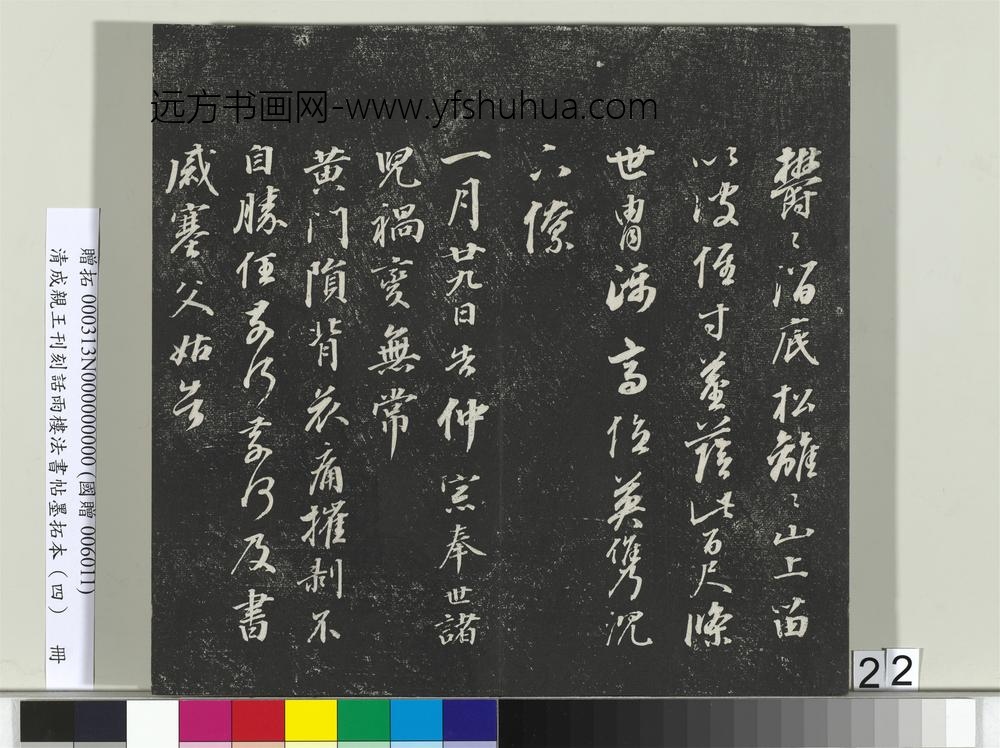 远方书画网-www.yfshuhua.com
欝〻澗底松離〻山上苗
以彼徑寸莖蔭此百尺條
世胄躡高位英儁沉
下僚
一月廿九日告仲宗奉世諸
兒禍變無常
黄門隕背哀痛摧剥不
自勝任奈何奈何及書
感塞父姑告
贈拓 000313N000000000 (國贈 006011)
清成親王刊刻話雨樓法書帖墨拓本（四） 冊
22